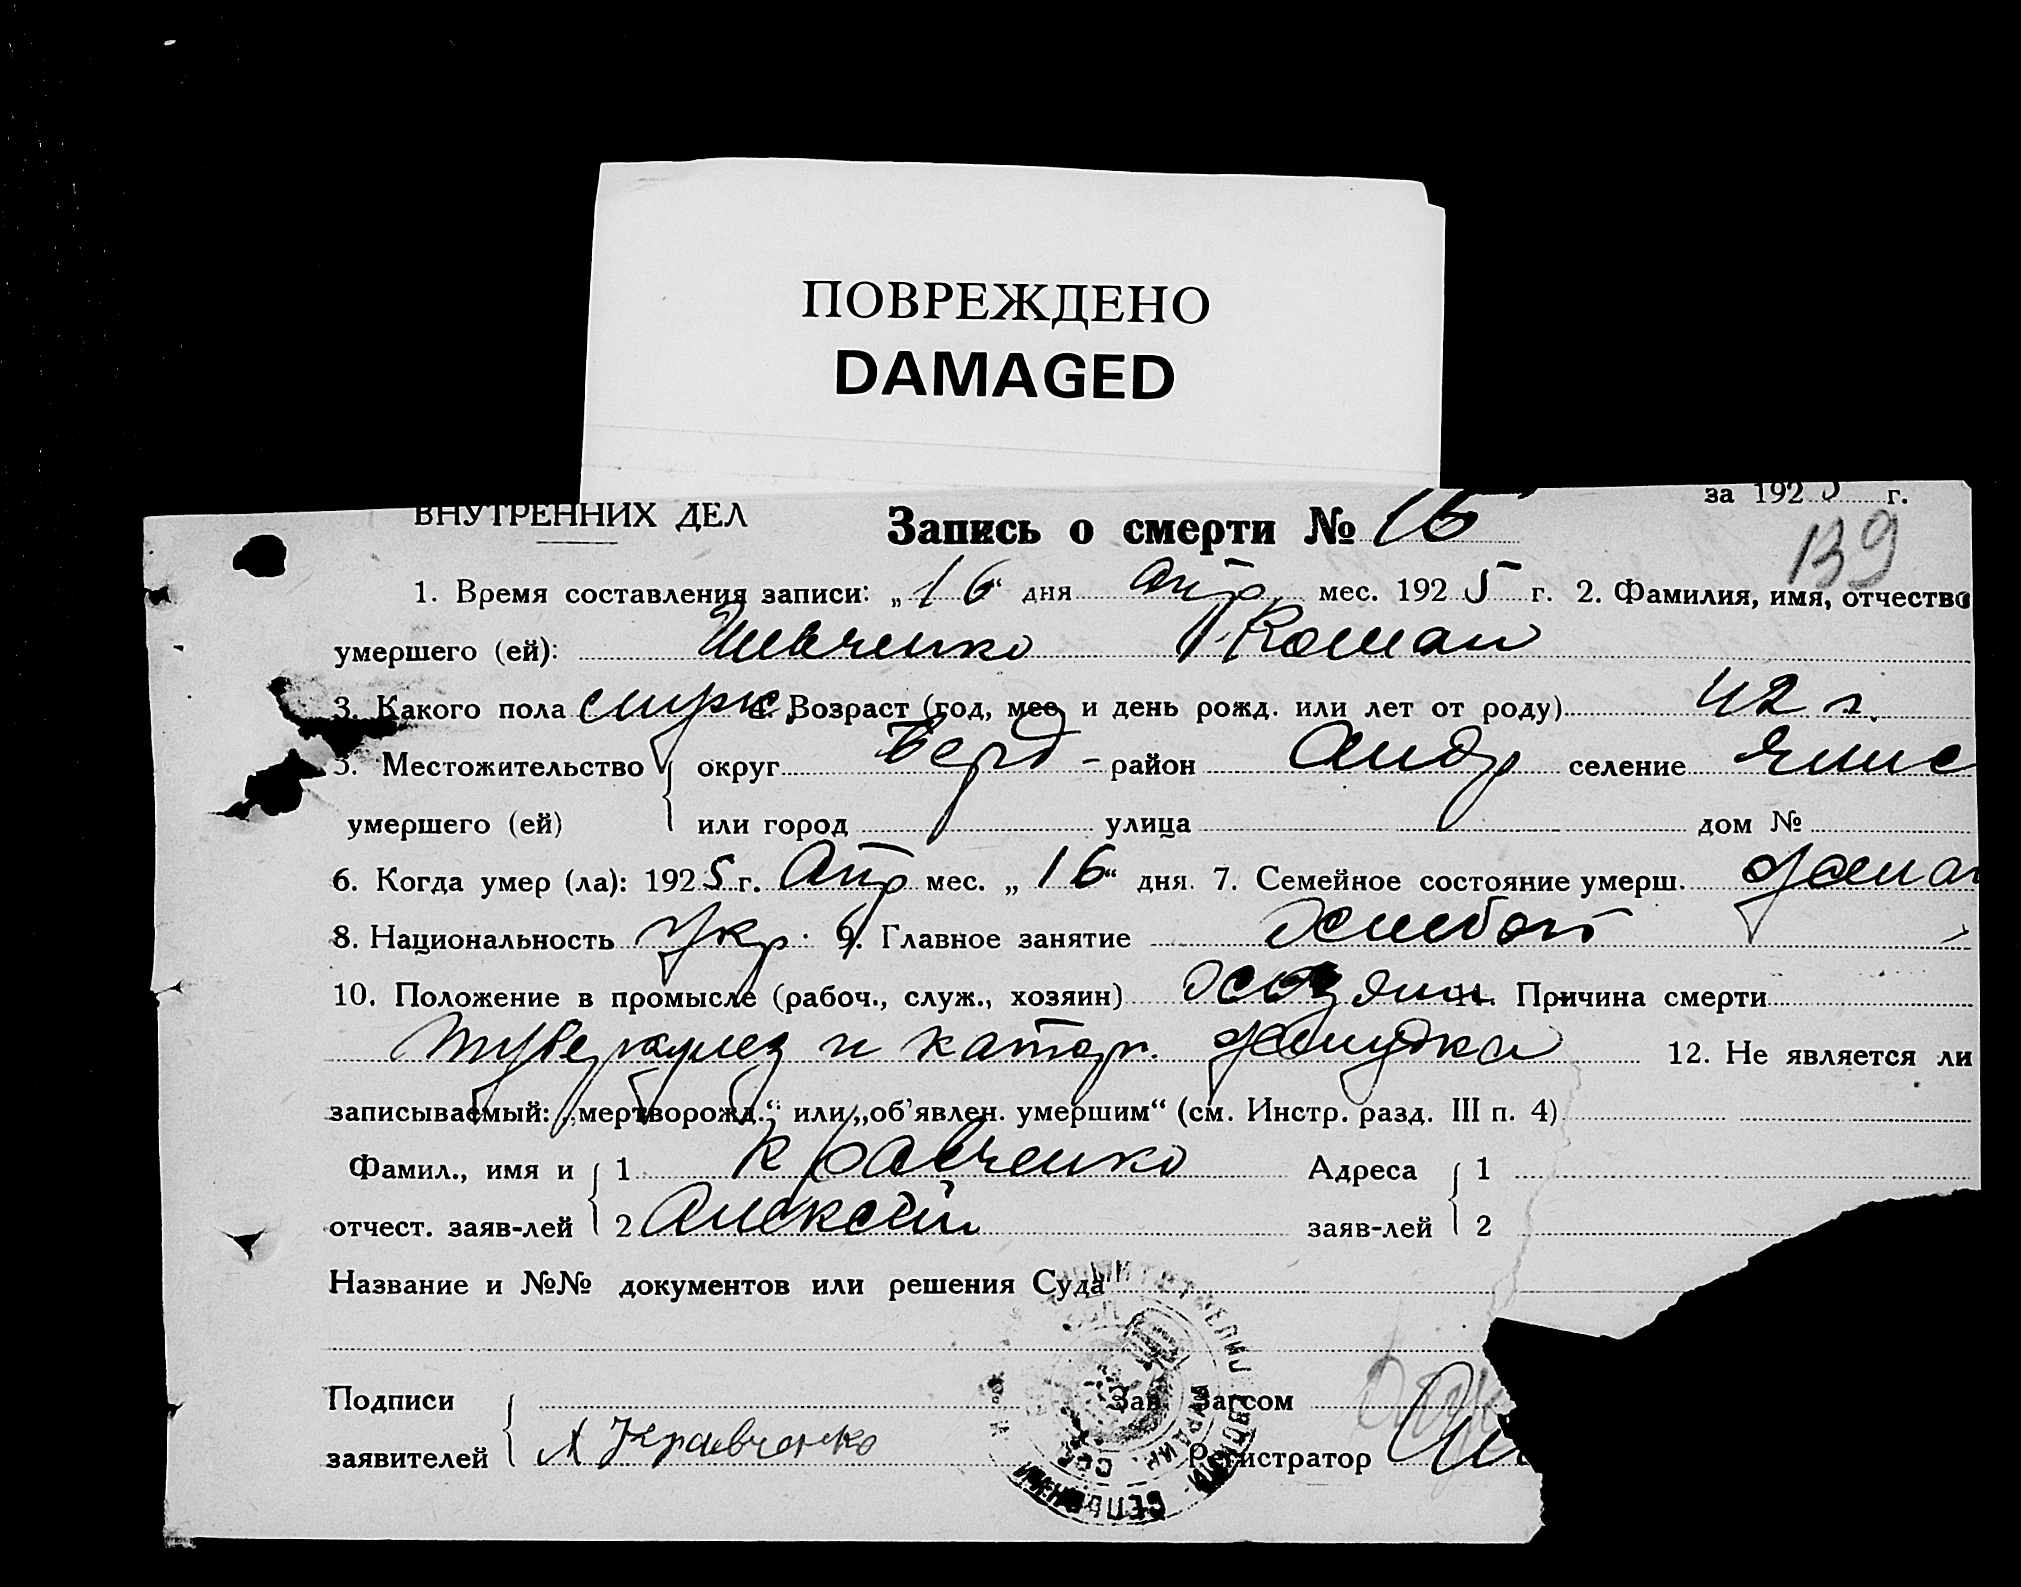 ПОВРЕЖДЕНО
DAMAGED
ВНУТРЕННИХ ДЕЛ
за 1925 г.
Запись о смерти № 16
139
1. Время составления записи: „16“ дня Апр. мес. 1925 г. 2. Фамилия, имя, отчество
умершего (ей): Шевченко Роман
3. Какого пола 4. Возраст (год, мес. и день рожд. или лет от роду) 42 г.
5. Местожительство округ Берд - район Андр селение
умершего (ей) или город улица дом №
6. Когда умер (ла): 1925 г. Апр мес. „16“ дня. 7. Семейное состояние умерш.
8. Национальность Укр. 9. Главное занятие хлебоп
10. Положение в промысле (рабоч., служ., хозяин) хозяин 11. Причина смерти
туберкулез и катар. желудка 12. Не является ли
записываемый: „мертворожд.“ или „об’явлен. умершим“ (см. Инстр. разд. III п. 4)
Фамил., имя и 1 Кравченко Адреса 1
отчест. заяв-лей 2 Алексей заяв-лей 2
Название и №№ документов или решения Суда
Подписи Зав. Загсом
заявителей А Кравченко Регистратор